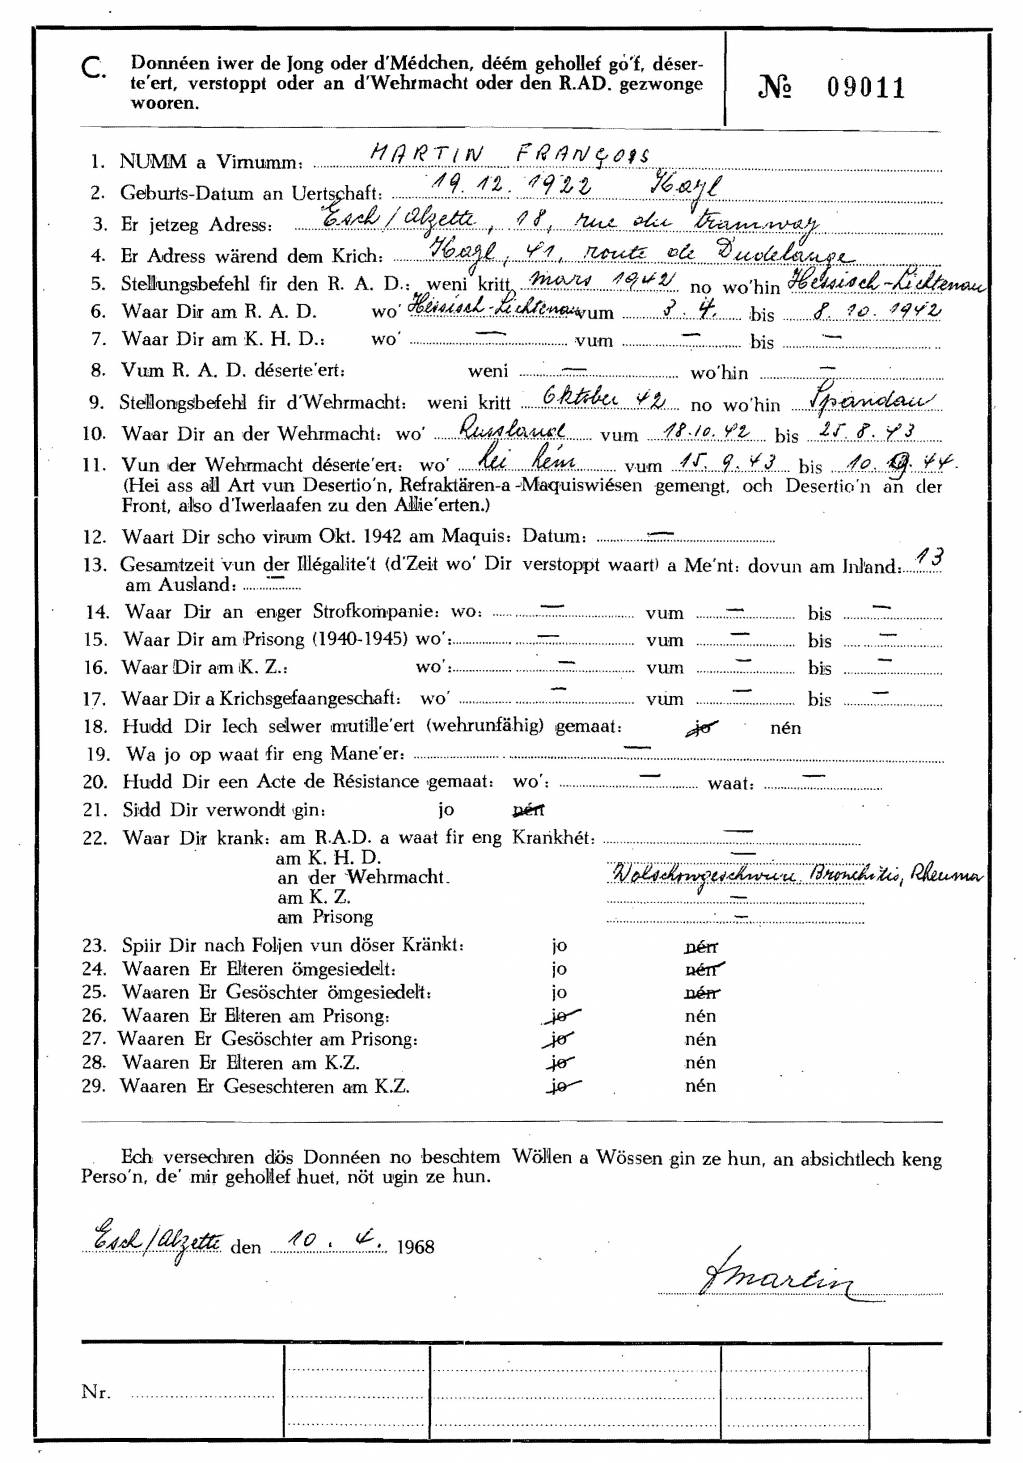 C. Donnéen iwer de Jong oder d'Médchen, déém gehollef gó'f, déser-
te'ert, verstoppt oder an d'Wehrmacht oder den R.AD. gezwonge
wooren.
№ 09011
1. NUMM a Virnumm: MARTIN FRANÇOIS
2. Geburts-Datum an Uertschaft: 19.12.1922 Kayl
3. Er jetzeg Adress: Esch/Alzette, 18, rue du tramway
4. Er Adress wärend dem Krich: Kayl, 41, route de Dudelange
5. Stellungsbefehl fir den R. A. D.: weni kritt mars 1942 no wo'hin Hessisch-Lichtenau
6. Waar Dir am R. A. D. wo' Hessisch-Lichtenau vum 3. 4. bis 8. 10. 1942
7. Waar Dir am K. H. D.: wo' — vum — bis —
8. Vum R. A. D. déserte'ert: weni — wo'hin —
9. Stellongsbefehl fir d'Wehrmacht: weni kritt Oktober 42 no wo'hin Spandau
10. Waar Dir an der Wehrmacht: wo' Russland vum 18.10.42 bis 25. 8. 43
11. Vun der Wehrmacht déserte'ert: wo' vum 15. 9. 43 bis 10. 9. 44.
(Hei ass all Art vun Desertio'n, Refraktären-a -Maquiswiésen gemengt, och Desertio'n an der
Front, also d'Iwerlaafen zu den Allie'erten.)
12. Waart Dir scho virum Okt. 1942 am Maquis: Datum: —
13. Gesamtzeit vun der Illégalite't (d'Zeit wo' Dir verstoppt waart) a Me'nt: dovun am Inland: 13
am Ausland: —
14. Waar Dir an enger Strofkompanie: wo: — vum — bis —
15. Waar Dir am Prisong (1940-1945) wo': — vum — bis —
16. Waar Dir am K. Z.: wo': — vum — bis —
17. Waar Dir a Krichsgefaangeschaft: wo' — vum — bis —
18. Hudd Dir Iech selwer mutille'ert (wehrunfähig) gemaat: jo nén
19. Wa jo op waat fir eng Mane'er: —
20. Hudd Dir een Acte de Résistance gemaat: wo': — waat: —
21. Sidd Dir verwondt gin: jo nén
22. Waar Dir krank: am R.A.D. a waat fir eng Krankhét: —
am K. H. D. —
an der Wehrmacht. Bronchitis, Rheuma
am K. Z. —
am Prisong —
23. Spiir Dir nach Foljen vun döser Kränkt: jo nén
24. Waaren Er Elteren ömgesiedelt: jo nén
25. Waaren Er Gesöschter ömgesiedelt: jo nén
26. Waaren Er Elteren am Prisong: jo nén
27. Waaren Er Gesöschter am Prisong: jo nén
28. Waaren Er Elteren am K.Z. jo nén
29. Waaren Er Geseschteren am K.Z. jo nén
Ech versechren dös Donnéen no beschtem Wöllen a Wössen gin ze hun, an absichtlech keng
Perso'n, de' mir gehollef huet, nöt ugin ze hun.
Esch/Alzette den 10. 4. 1968
Fmartin
Nr.